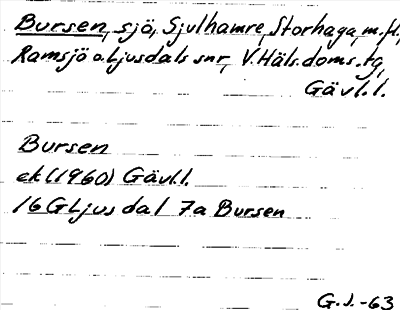 Bursen, sjö, Sjulhamre, Storhaga, m.fl.,
Ramsjö o. Ljusdals snr, V. Häls. doms. tg,
Gävl. l.
Bursen
ek (1960) Gävl. l.
16 G Ljusdal 7a Bursen
G.J. -63